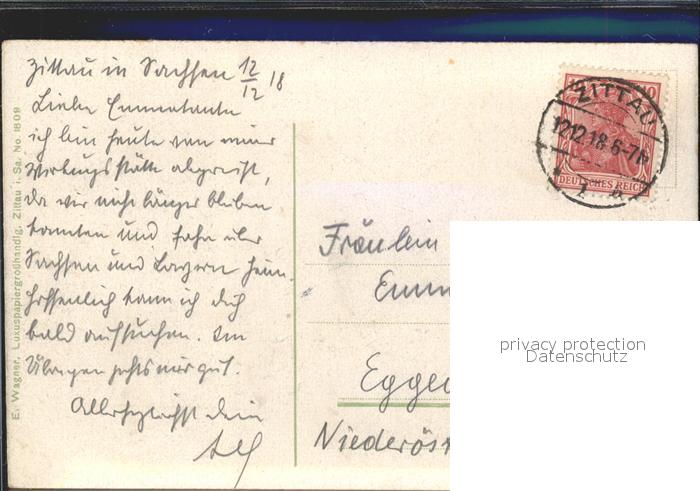 Zittau in Sachsen 12/12 18
Liebe Emmatante
ich bin heute von meiner
Wirkungsstätte abgereist,
da wir nicht länger bleiben
konnten und fahre über
Sachsen und Bayern heim.
Hoffentlich kann ich dich
bald aufsuchen. Im
Übrigen geht's mir gut.
Allerherzlichst dein
ZITTAU
12.12.18.6-7N
DEUTSCHES REICH
10
Fräulein
Emm
Eggen
Niederös
privacy protection
Datenschutz
E. Wagner, Luxuspapiergroßhandlg. Zittau i. Sa. No 1809